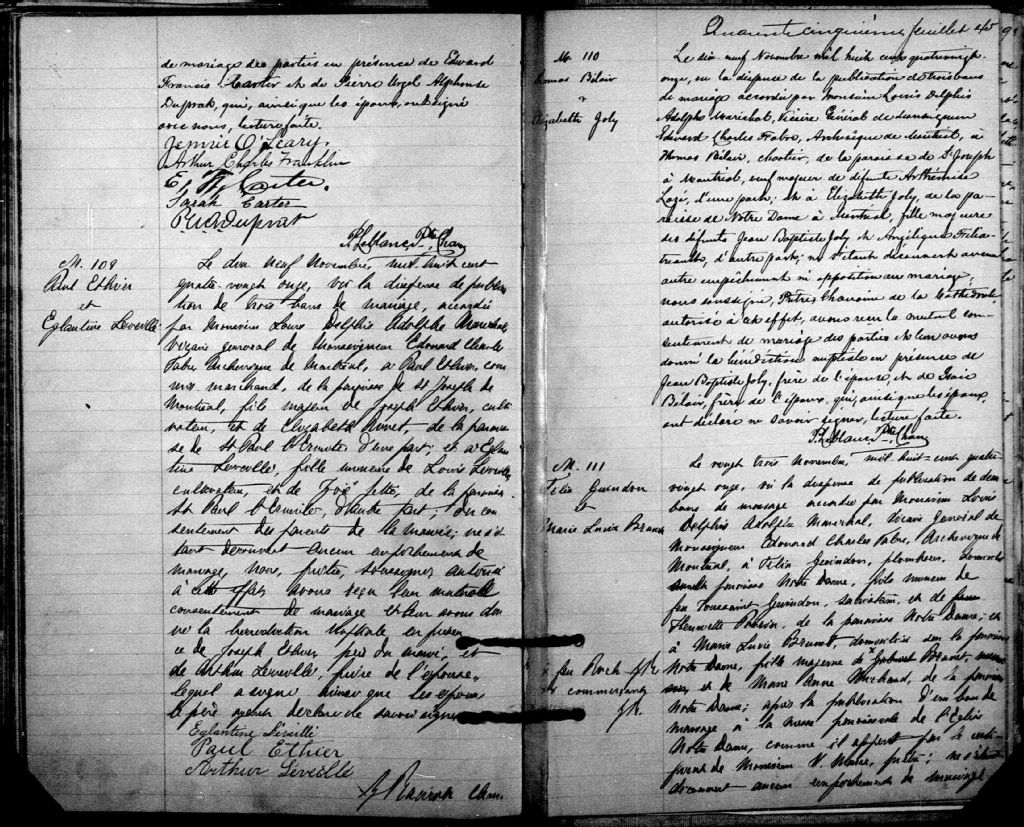 de mariage des parties en présence de Edward
Francis Carter et de Pierre Urgel Alphonse
Duprat, qui, ainsi que les époux, ont signé
avec nous, lecture faite.
Jennie O'Leary.
Arthur Charles Franklin
E. F. Carter.
Sarah Carter
P.U.A. Duprat
P. Leblanc Ptre, Chan
M. 109
Paul Ethier
et
Eglantine Leveillé
Le dix neuf Novembre, mil huit cent
quatre-vingt onze, vu la dispense de publica
tion de trois bans de mariage, accordée
par Monsieur Louis Delphis Adolphe Maréchal,
vicaire general de Monseigneur Edouard Charles
Fabre Archevêque de Montréal, à Paul Ethier, com
mis marchand, de la paroisse de St Joseph de
Montréal, fils majeur de Joseph Ethier, culti
vateur, et de Elizabeth, de la parois
se de St Paul l'Ermite d'une part; et à Eglan
tine Leveillé, fille mineure de Louis Leveillé
cultivateur, et de Zoé Jetté, de la paroisse
St Paul l'Ermite, d'autre part; du con
sentement des parents de la mariée; ne s'é
tant découvert aucun empêchement de
mariage, Nous, prêtre, soussigné autorisé
à cet effet avons reçu leur mutuel
consentement de mariage et leur avons don
né la bénédiction nuptiale en présen
ce de Joseph Ethier, père du marié, et
de Arthur Leveillé, frère de l'épouse,
lequel a signé ainsi que les époux
le père ayant déclaré ne savoir signer
Eglantine Léveillé
Paul Ethier
Arthur Léveillé
Chan.
Quarante cinquième feuillet 45
M. 110
Thomas Bélair
&
Elizabeth Joly
Le dix neuf Novembre mil huit cent quatrevingt-
onze, vu la dispense de la publication de trois bans
de mariage accordée par Monsieur Louis Delphis
Adolphe Maréchal, Vicaire Général de Monseigneur
Edouard Charles Fabre, Archevêque de Montréal, à
Thomas Bélair, charretier, de la paroisse de St Joseph
à Montréal, veuf majeur de défunte Arthémise
d'une part; et à Elizabeth Joly, de la pa-
roisse de Notre Dame à Montréal, fille majeure
des défunts Jean Baptiste Joly et Angélique Filia-
treault, d'autre part; ne s'étant découvert aucun
autre empêchement ni opposition au mariage,
nous soussigné, Prêtre, Chanoine de la Cathédrale
autorisé à cet effet, avons reçu le mutuel con-
sentement de mariage des parties et leur avons
donné la bénédiction nuptiale en présence de
Jean Baptiste Joly, frère de l'épouse, et de Isaïe
Bélair, frère de l'époux, qui, ainsi que les époux,
ont déclaré ne savoir signer, lecture faite.
P. Leblanc Ptre, Chan
M. 111
Félix Guindon
et
Marie Luvie Brunet
Le vingt trois Novembre, mil huit-cent quatre
vingt onze, vu la dispense de publication de deux
bans de mariage accordée par Monsieur Louis
Delphis Adolphe Maréchal, Vicaire General de
Monseigneur Edouard Charles Fabre, Archevêque de
Montréal, à Félix Guindon, plombier, domicilié
paroisse Notre Dame, fils mineur de
feu Toussaint Guindon, sacristain, et de
Henriette, de la paroisse Notre Dame; et
à Marie Luvie Brunet, domiciliée sur la paroisse
Notre Dame, fille majeure de Brunet,
et de Marie Anne, de la paroisse
Notre Dame; après la publication d'un ban de
mariage à la messe paroissiale de l'Eglise
Notre Dame, comme il appert par le certi-
ficat de Monsieur, prêtre; ne s'étant
découvert aucun empêchement de mariage
x feu Roch
x commerçant